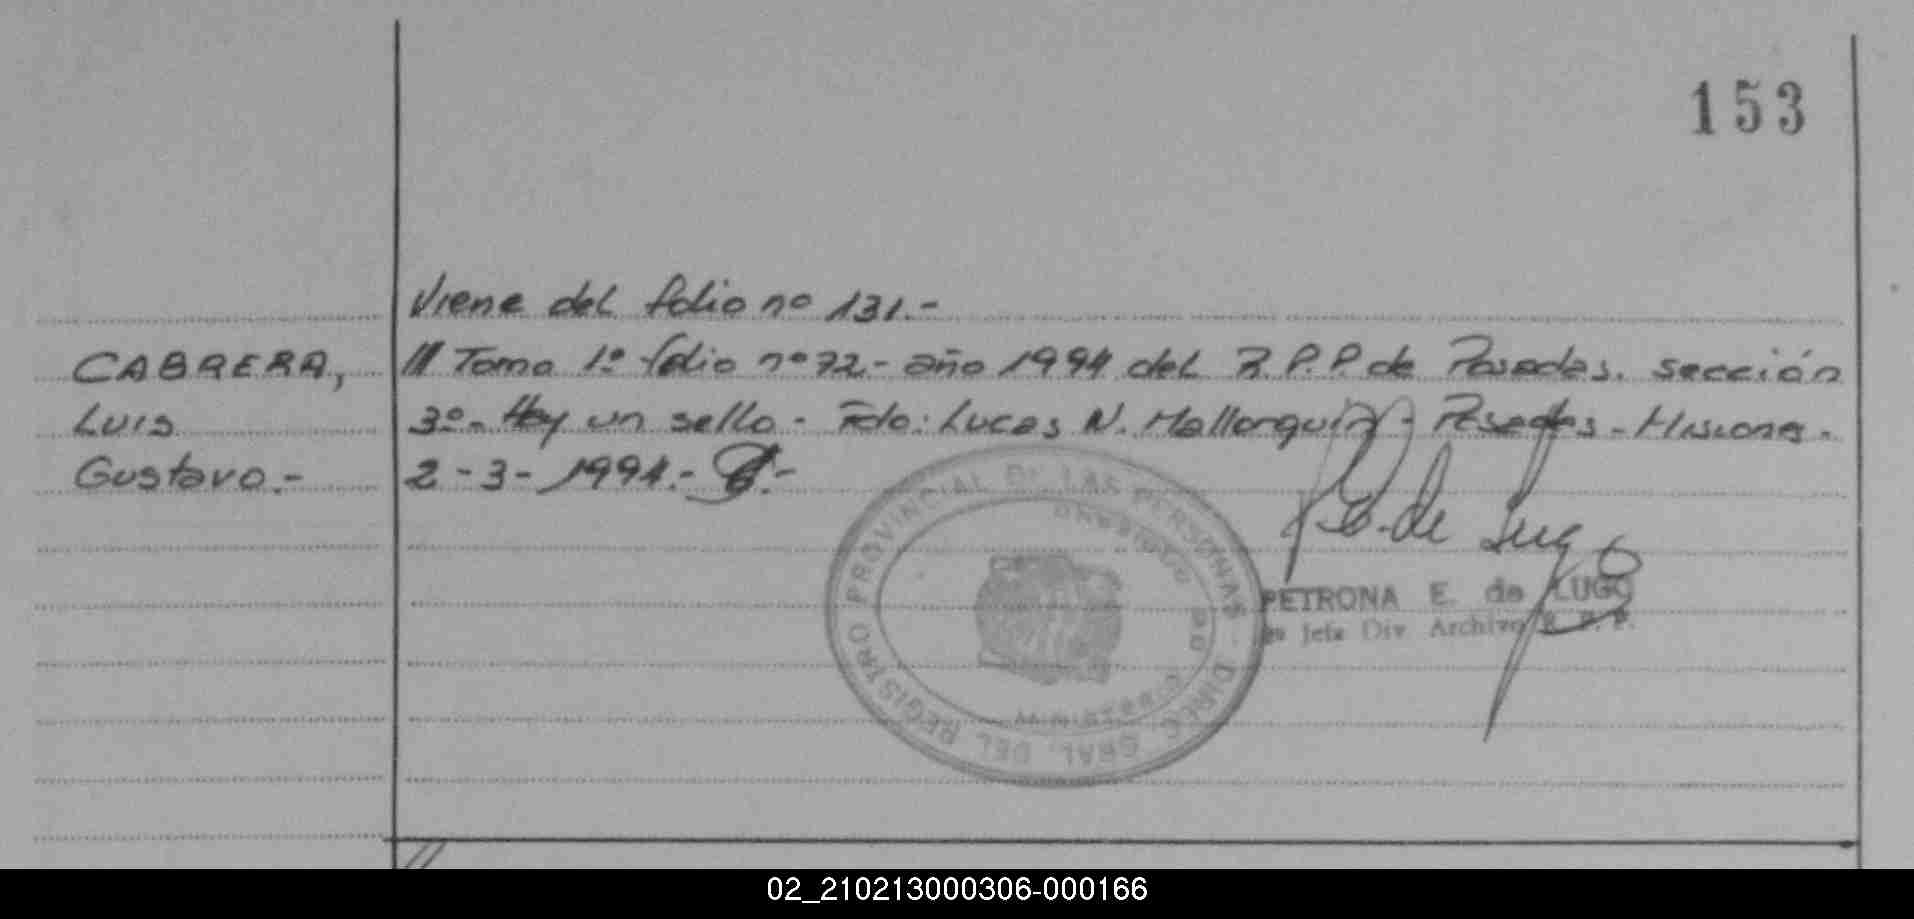 153
Viene del folio nº 131.-
CABRERA, /// Tomo 1º folio nº 72.- año 1994 del R.P.P. de Posadas. sección
LUIS 3º.- Hay un sello.- Fdo: Lucas N. Mallorquin - Posadas - Misiones.-
Gustavo.- 2-3-1994.-
DIREC. GRAL. DEL REGISTRO PROVINCIAL DE LAS PERSONAS
MINISTERIO DE GOBIERNO
P. E. de Lugo
PETRONA E. de LUGO
Jefa Div Archivo R. P. P.
//
02_210213000306-000166